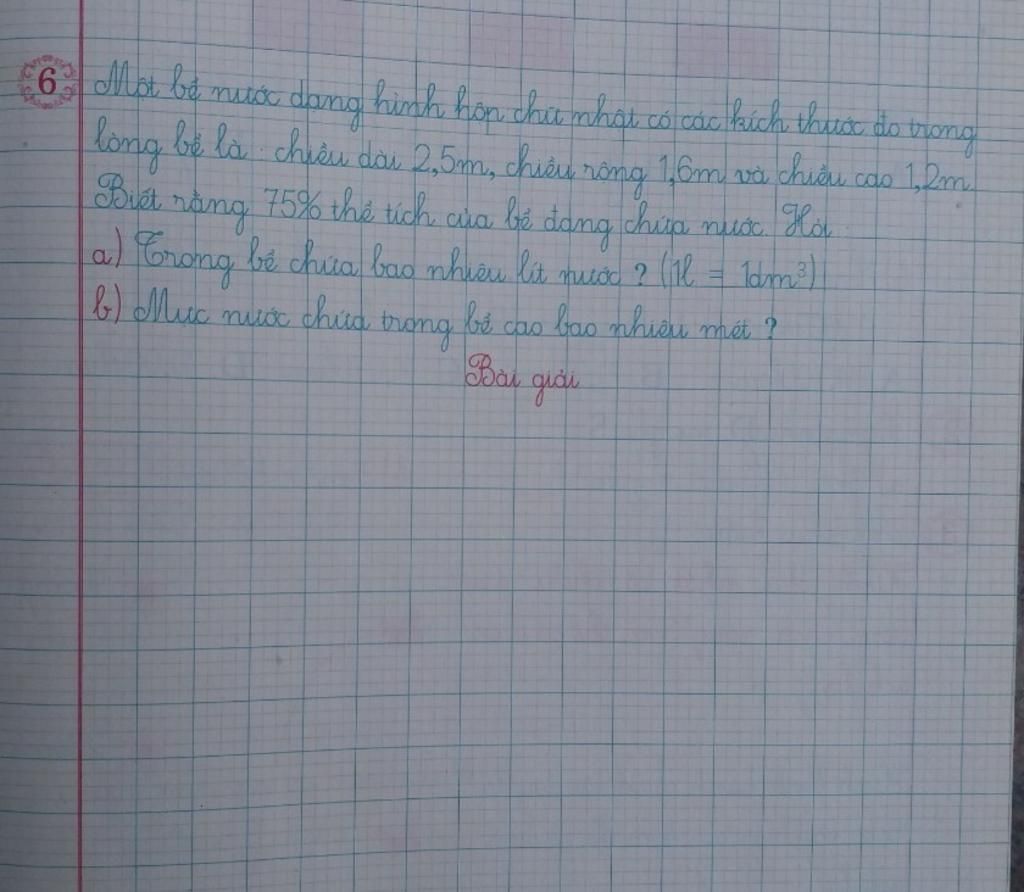 6 Một bể nước dạng hình hộp chữ nhật có các kích thước đo trong
lòng bể là: chiều dài 2,5m, chiều rộng 1,6m và chiều cao 1,2m.
Biết rằng 75% thể tích của bể đang chứa nước. Hỏi
a) Trong bể chứa bao nhiêu lít nước? (1l = 1dm³)
b) Mực nước chứa trong bể cao bao nhiêu mét?
Bài giải